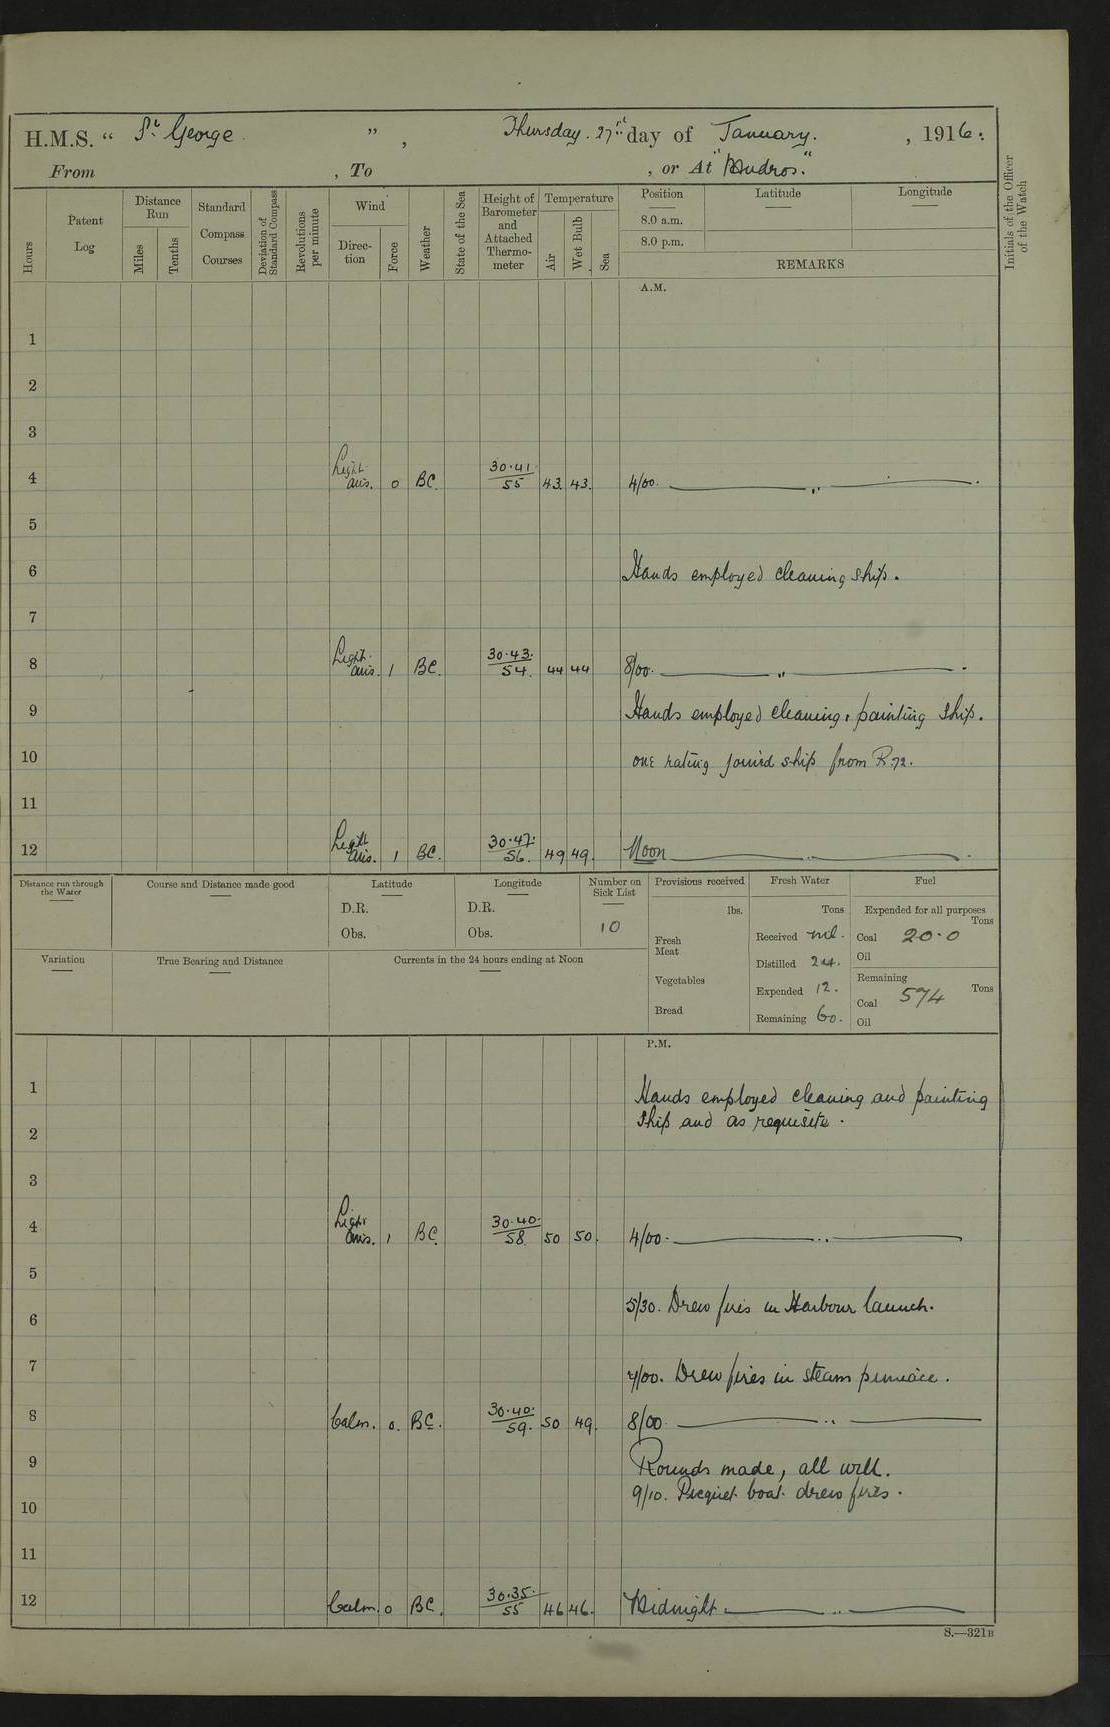 H.M.S. “ St George ”, Thursday. 27th day of January. , 1916.
From , To , or At "Mudros."
Hours
Patent Log
Distance Run
Miles
Tenths
Standard Compass Courses
Deviation of Standard Compass
Revolutions per minute
Wind
Direction
Force
Weather
State of the Sea
Height of Barometer and Attached Thermometer
Temperature
Air
Wet Bulb
Sea
Position
8.0 a.m.
8.0 p.m.
Latitude
Longitude
REMARKS
Initials of the Officer of the Watch
A.M.
1
2
3
4 Light airs. 0 BC. 30.41 / 55 43. 43. 4/00. "
5
6 Hands employed cleaning ship.
7
8 Light airs. 1 BC. 30.43. / 54. 44 44 8/00. "
9 Hands employed cleaning & painting ship.
10 one rating joined ship from R.72.
11
12 Light airs. 1 BC. 30.47. / 56. 49 49. Noon "
Distance run through the Water
Course and Distance made good
Latitude
D.R.
Obs.
Longitude
D.R.
Obs.
Number on Sick List
10
Provisions received
lbs.
Fresh Meat
Vegetables
Bread
Fresh Water
Tons
Received nil.
Distilled 24.
Expended 12.
Remaining 60.
Fuel
Expended for all purposes
Tons
Coal 20.0
Oil
Remaining
Tons
Coal 574
Oil
Variation
True Bearing and Distance
Currents in the 24 hours ending at Noon
P.M.
1 Hands employed cleaning and painting
2 ship and as requisite.
3
4 Light airs. 1 BC. 30.40. / 58. 50 50. 4/00. "
5
6 5/30. Drew fires in Harbour launch.
7 7/00. Drew fires in steam pinnace.
8 Calm. 0. BC. 30.40. / 59. 50 49. 8/00. "
9 Rounds made, all well.
10 9/10. Picquet boat drew fires.
11
12 Calm. 0 BC. 30.35. / 55 46 46. Midnight "
S.—321B